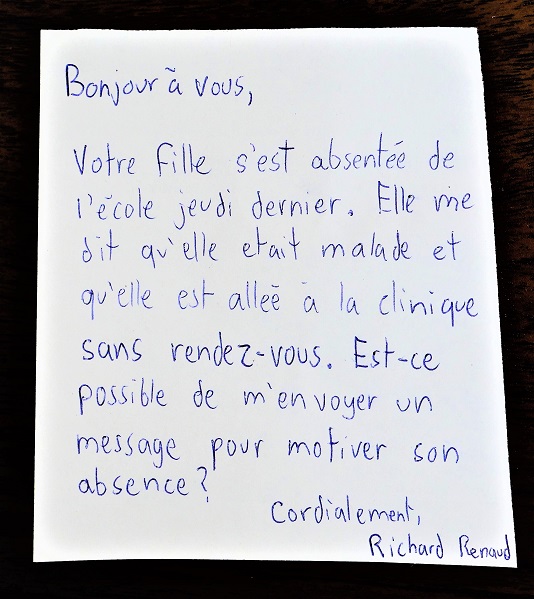 Bonjour à vous,
Votre fille s'est absentée de
l'école jeudi dernier. Elle me
dit qu'elle etait malade et
qu'elle est alleé à la clinique
sans rendez-vous. Est-ce
possible de m'envoyer un
message pour motiver son
absence?
Cordialement,
Richard Renaud